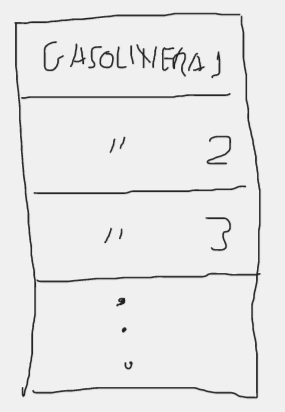 GASOLINERA 1
" 2
" 3